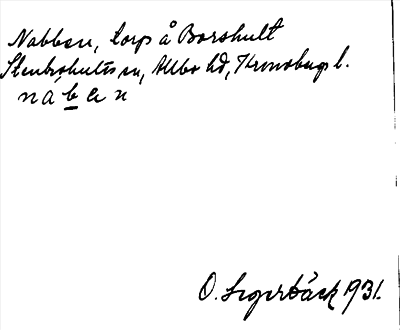 Nabben, torp å Borshult
Stenbrohults sn, Allbo hd, Kronobergs l.
n a b e n
O. Segerbäck 1931.